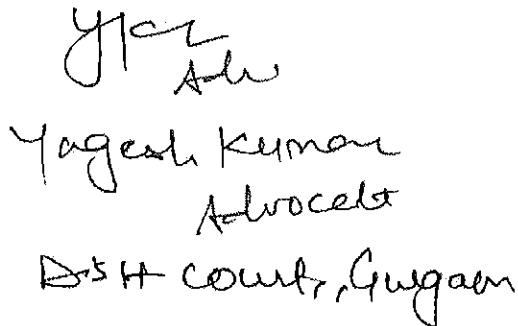 Adv
Yogesh Kumar
Advocate
Distt Court, Gurgaon